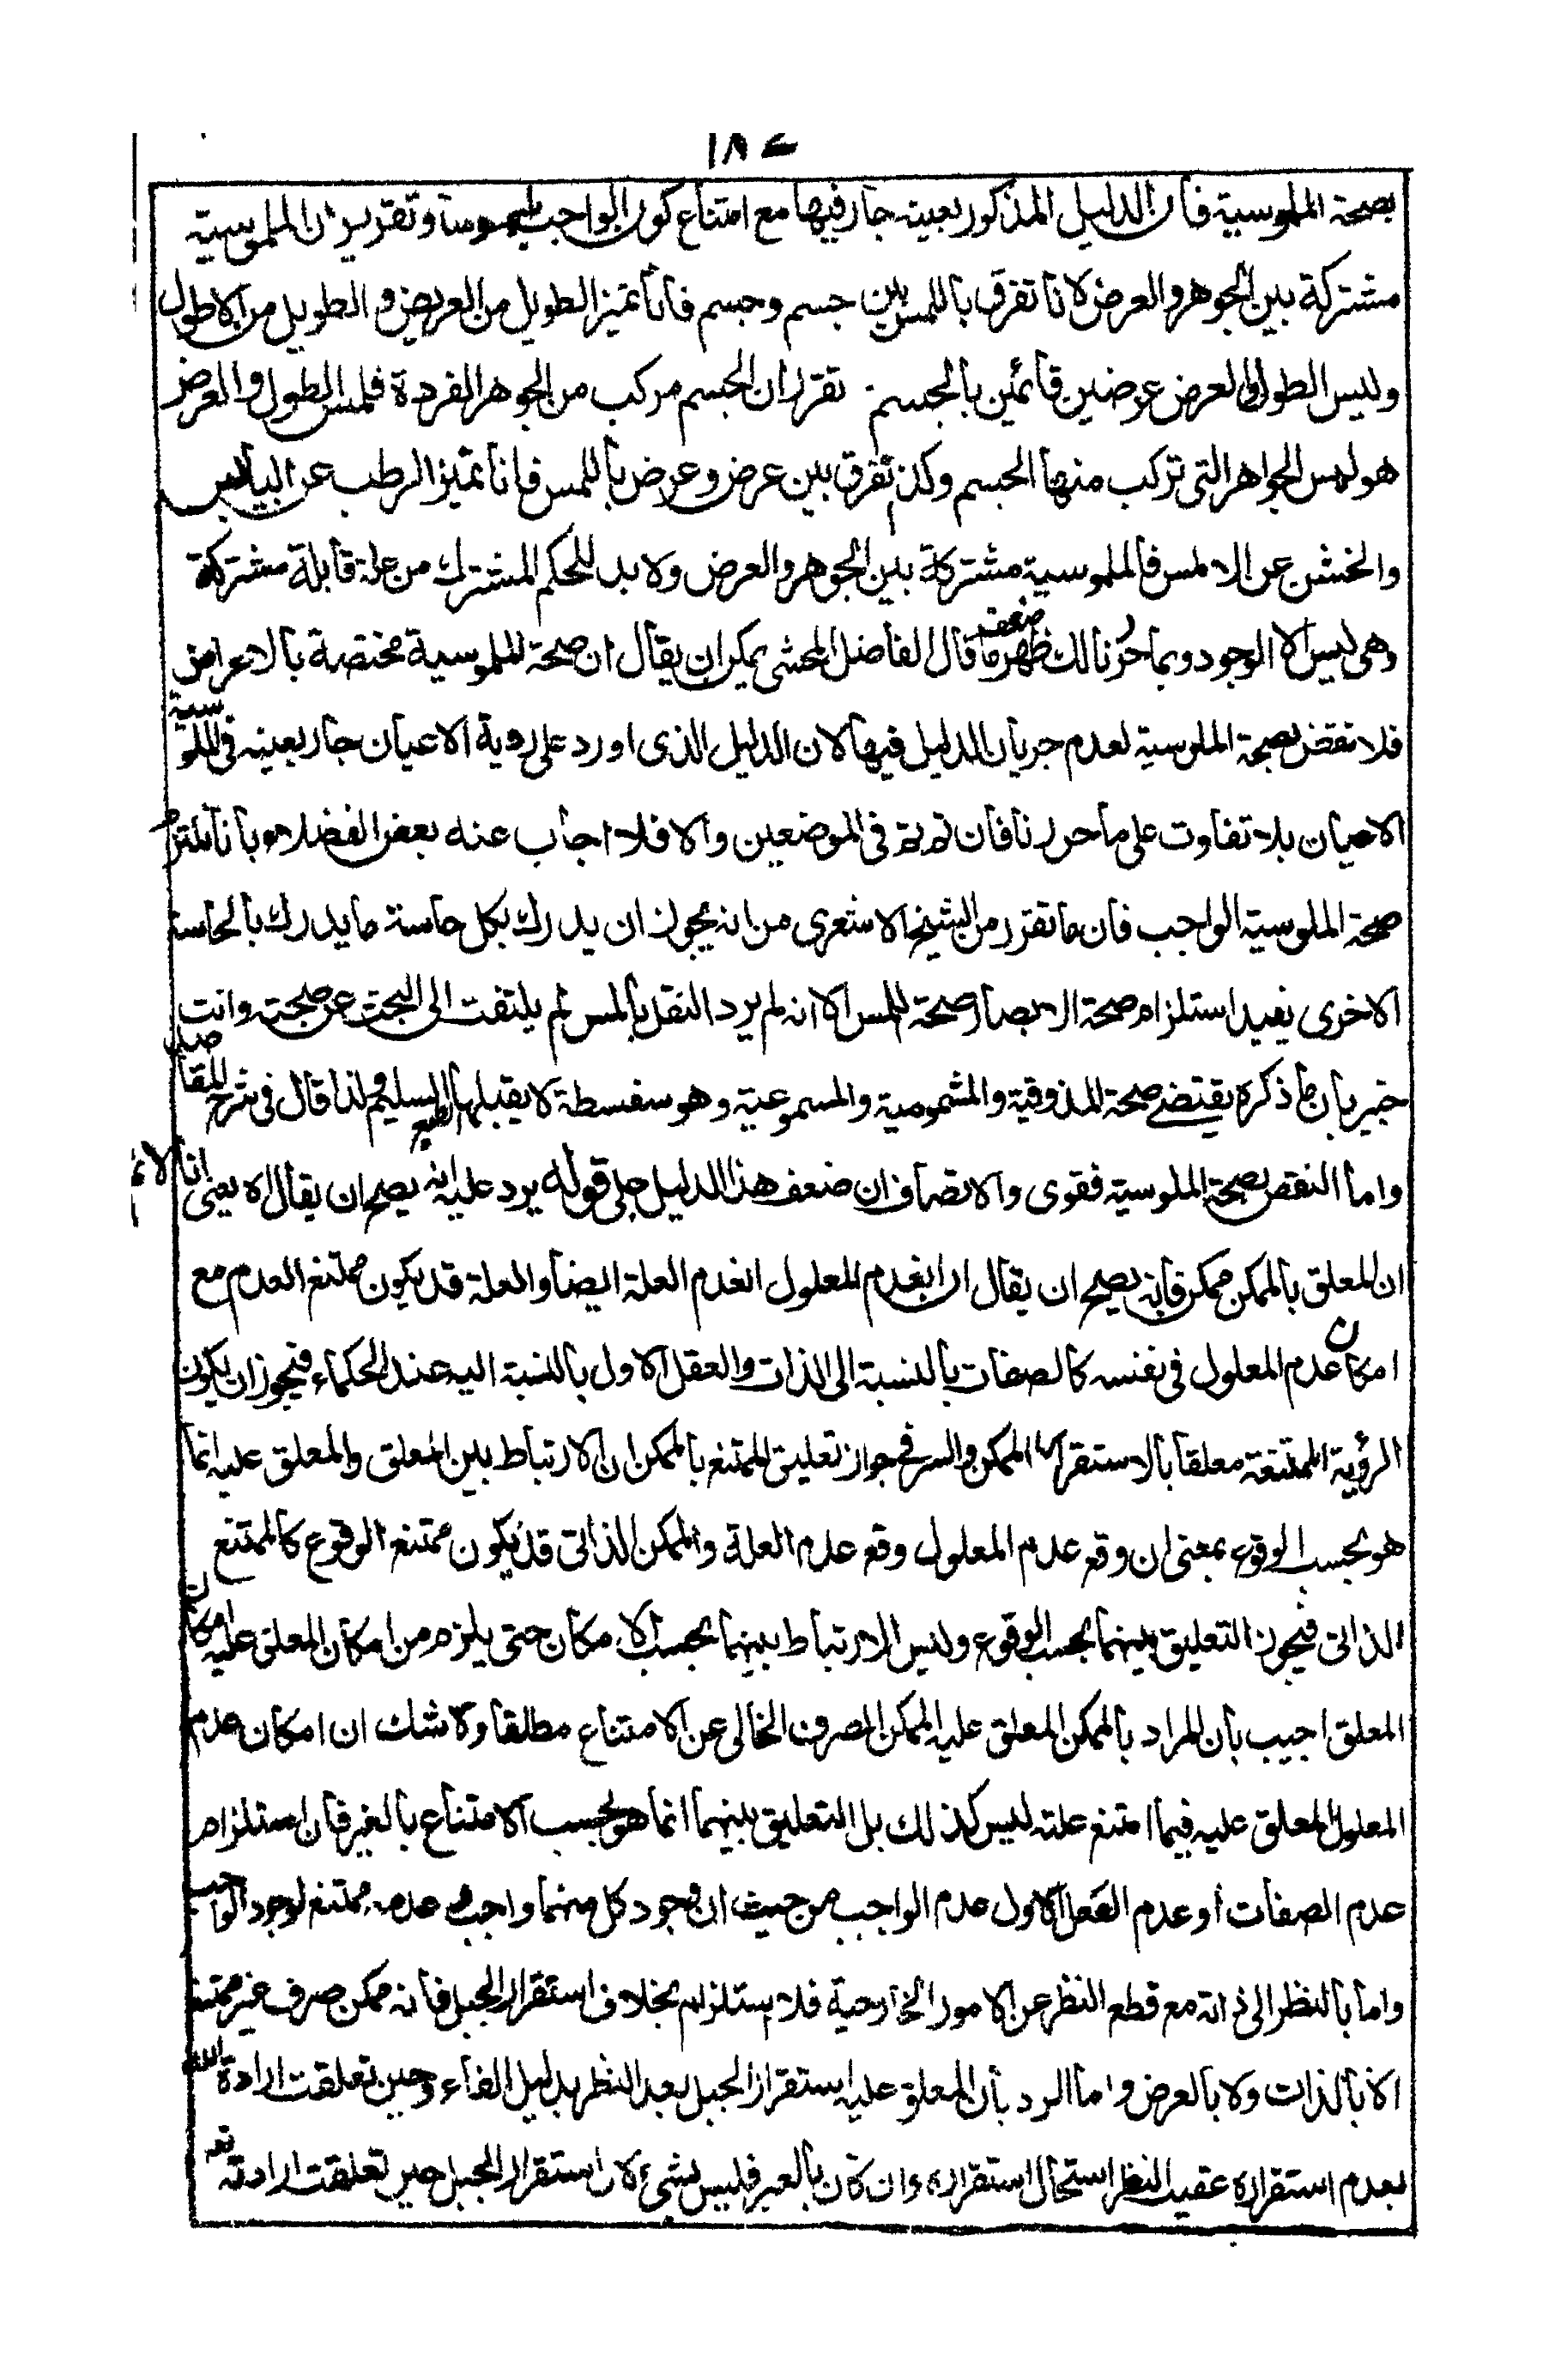 ١٨٤
بصحة الملموسية فان الدليل المذكور بعينه جار فيها مع امتناع كون الواجب ملموسا وتقريره ان الملموسية
مشتركة بين الجوهر والعرض لانا نفرق باللمس بين جسم وجسم فانا نميز الطويل من العريض و الطويل من الاطول
وليس الطول والعرض عرضين قائمين بالجسم تقرر ان الجسم مركب من الجوهر الفردة فلمس الطول والعرض
هو لمس الجواهر التي تركب منها الجسم وكذا نفرق بين عرض وعرض باللمس فانا نميز الرطب عن اليابس
والخشن عن الاملس فالملموسية مشتركة بين الجوهر والعرض ولا بد للحكم المشترك من علة قابلة مشتركة
وهي ليس الا الوجود وبما حررنا لك ظهر ضعف ما قال الفاضل المحشي يمكن ان يقال ان صحة الملموسية مختصة بالاعراض
فلا نقض بصحة الملموسية لعدم جريان الدليل فيها لان الدليل الذي اورد على روية الاعيان جار بعينه في الملموسية
الاعيان بلا تفاوت على ما حررنا فان تم تم في الموضعين والا فلا اجاب عنه بعض الفضلاء بانا نلتزم
صحة الملموسية الواجب فان ما تقرر من الشيخ الاشعري من انه يجوز ان يدرك بكل حاسة ما يدرك بالحاسة
الاخرى يفيد استلزام صحة الابصار صحة اللمس الا انه لم يرد النقل بالمس لم يلتفت الى البحث عن صحته وانت
خبير بان ما ذكره يقتضي صحة المذوقية والمشمومية والمسموعية وهو سفسطة لا يقبلها الطبع السليم ولذا قال في شرح المقاصد
واما النقض بصحة الملموسية فقوى والانصاف ان ضعف هذا الدليل جلي قوله يرد عليه انه يصح ان يقال اه يعني انا لا نم
ان المعلق بالممكن ممكن فانه يصح ان يقال ان انعدم المعلول انعدم العلة ايضا والعلة قد يكون ممتنع العدم مع
امكان عدم المعلول في نفسه كالصفات بالنسبة الى الذات والعقل الاول بالنسبة اليه عند الحكماء فيجوز ان يكون
الرؤية الممتنعة معلقا بالاستقرار الممكن والسر في جواز تعليق الممتنع بالممكن ان الارتباط بين المعلق والمعلق عليه انما
هو بحسب الوقوع بمعنى ان وقع عدم المعلول وقع عدم العلة والممكن الذاتي قد يكون ممتنع الوقوع كالممتنع
الذاتي فيجوز التعليق بينهما بحسب الوقوع وليس الارتباط بينهما بحسب الامكان حتى يلزم من امكان المعلق عليه امكان
المعلق اجيب بان المراد بالممكن المعلق عليه الممكن الصرف الخالي عن الامتناع مطلقا ولا شك ان امكان عدم
المعلول المعلق عليه فيما امتنع علته ليس كذلك بل التعليق بينهما انما هو بحسب الامتناع بالغير فان استلزام
عدم الصفات او عدم العقل الاول عدم الواجب من حيث ان وجود كل منهما واجب وعدمه ممتنع لوجود الواجب
واما بالنظر الى ذاته مع قطع النظر عن الامور الخارجية فلا استلزام بخلاف استقرار الجبل فانه ممكن صرف غير ممتنع
لا بالذات ولا بالعرض واما الرد بان المعلق عليه استقرار الجبل بعد النظر بدليل الفاء وحين تعلقت ارادة الله
بعدم استقراره عقيب النظر استحال استقراره وان كان بالغير فليس بشيء لان استقرار الجبل حين تعلقت ارادته تعـ